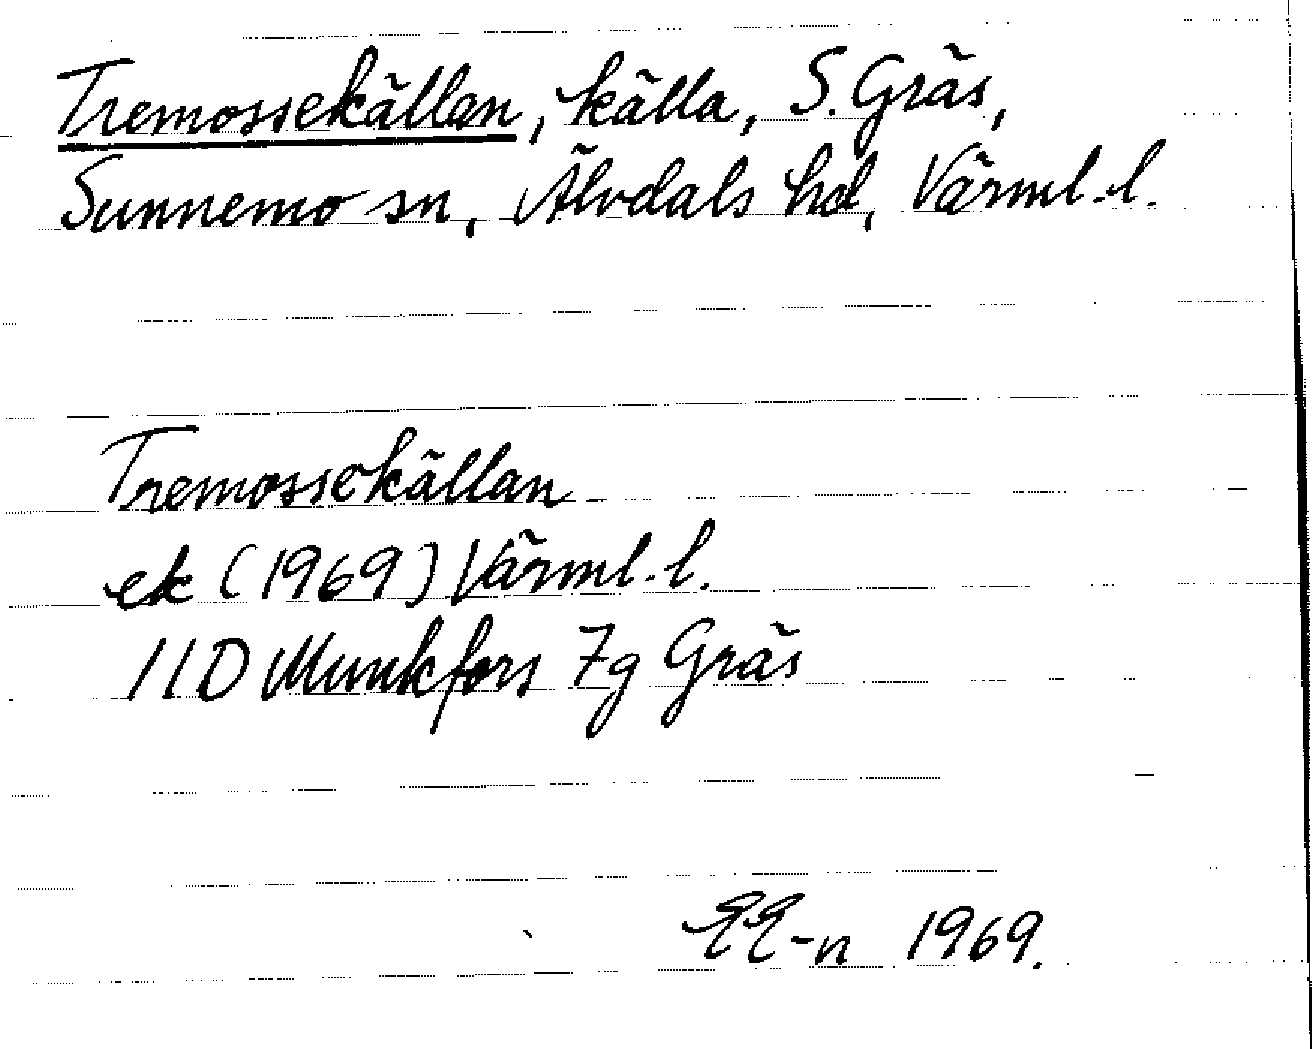 Tremossekällan, källa, S. Gräs,
Sunnemo sn, Älvdals hd, Värml. l.
Tremossekällan
ek (1969) Värml. l.
11D Munkfors 7g Gräs
EE-n 1969.